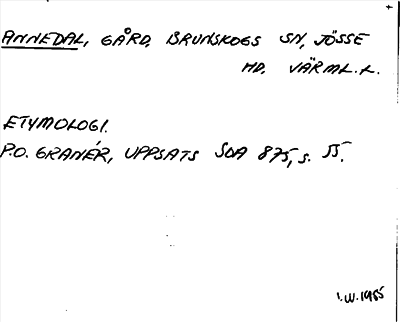 ANNEDAL, GÅRD, BRUNSKOGS SN, JÖSSE
HD. VÄRML. L.
ETYMOLOGI.
P.O. GRANÉR, UPPSATS SOA 875, s. 55.
I.W. 1955